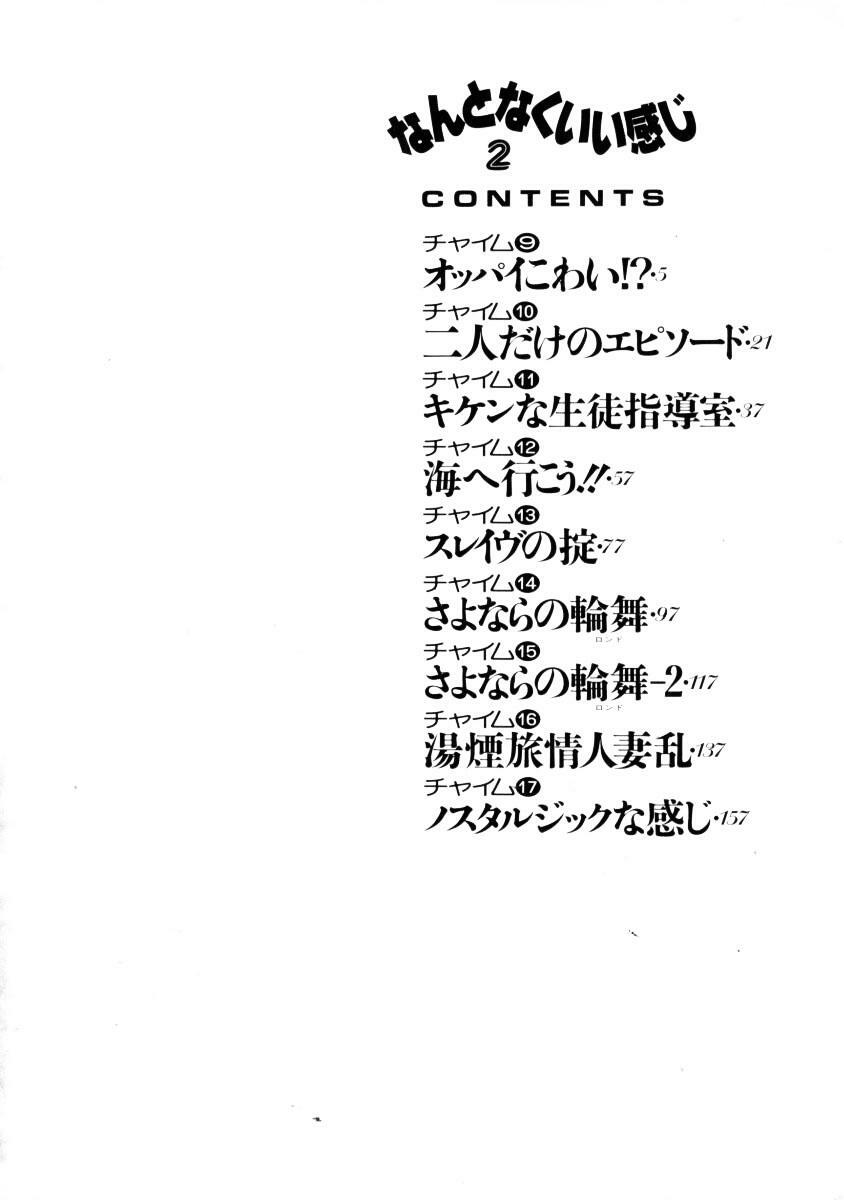 なんとなくいい感じ
2
CONTENTS
チャイム❾
オッパイこわい!?・5
チャイム❿
二人だけのエピソード・21
チャイム⓫
キケンな生徒指導室・37
チャイム⓬
海へ行こう!!・57
チャイム⓭
スレイヴの掟・77
チャイム⓮
さよならの輪舞・97
ロンド
チャイム⓯
さよならの輪舞-2・117
ロンド
チャイム⓰
湯煙旅情人妻乱・137
チャイム⓱
ノスタルジックな感じ・157